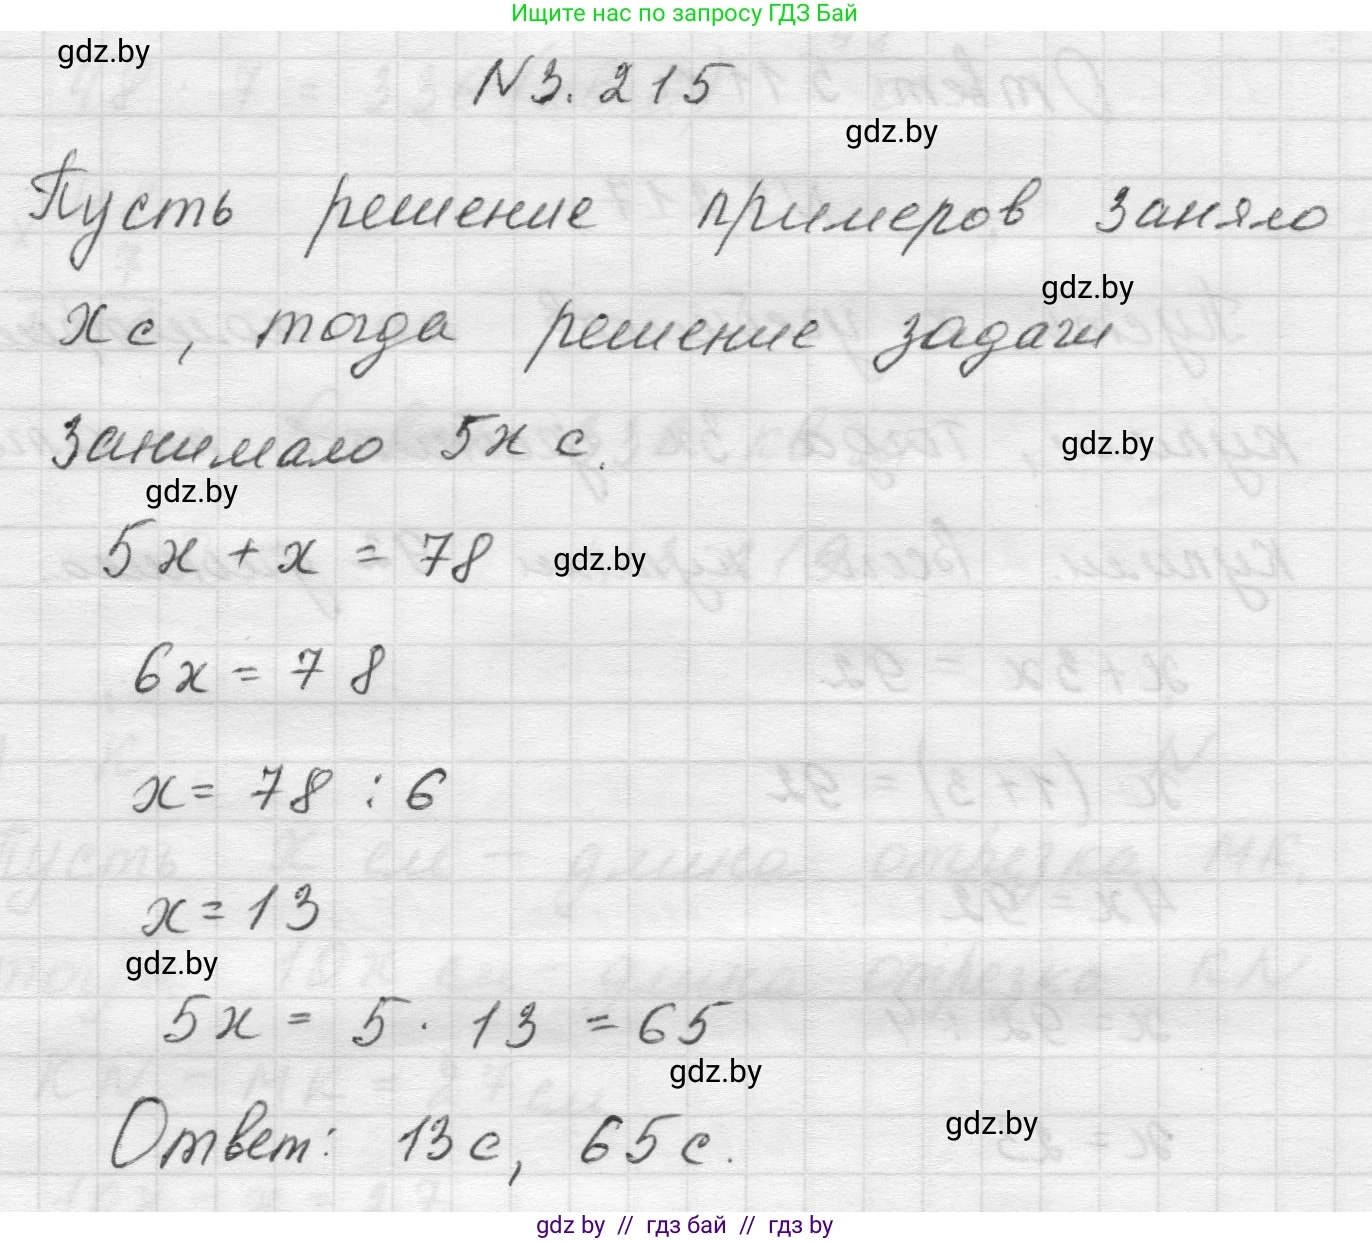 Ищите нас по запросу ГДЗ Бай
gdz.by
N3.215
gdz.by
Пусть решение примеров заняло
gdz.by
x с, тогда решение задачи
занимало 5x с.
gdz.by
gdz.by
5x + x = 78
gdz.by
6x = 78
x = 78 : 6
x = 13
gdz.by
5x = 5 · 13 = 65
gdz.by
Ответ: 13 с, 65 с.
gdz.by
gdz by // гдз бай // gdz by